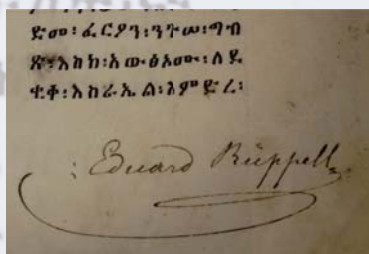 ድሙ፡ ፈርዖን፡ ንጉሠ፡ ግብ
ጽ፡ እስከ፡ አውፅኦሙ፡ ለደ
ቂቀ፡ እስራኤል፡ እምድረ፡
: Eduard Rüppell